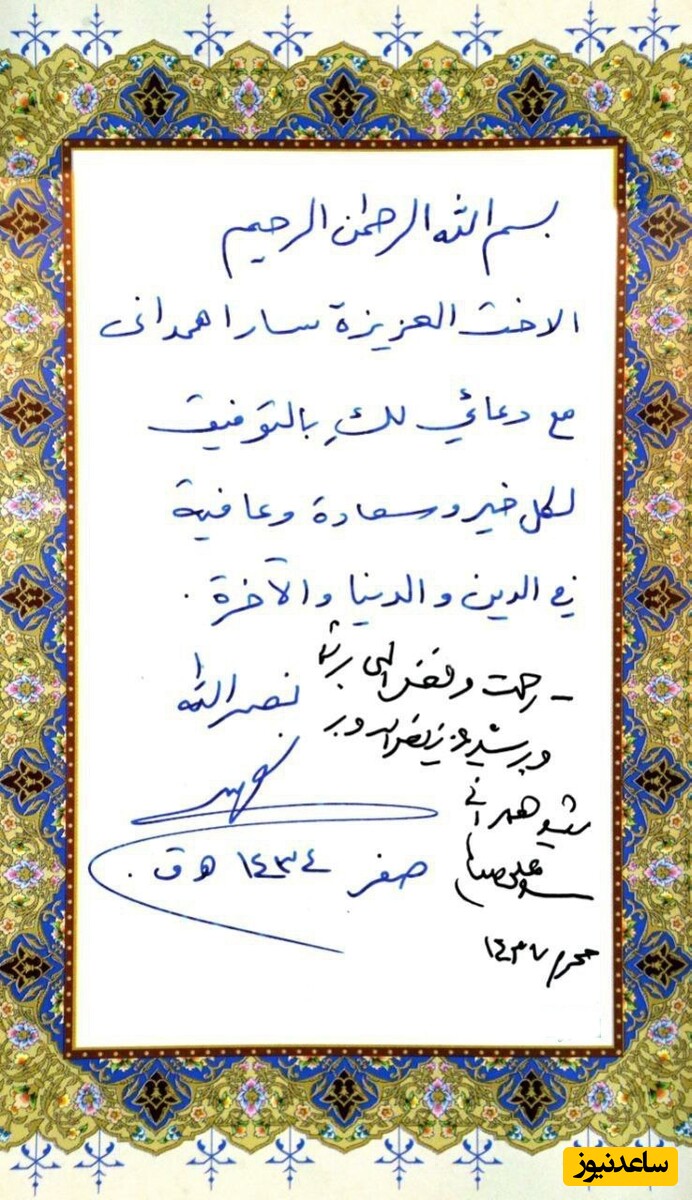 بسم الله الرحمٰن الرحيم
الاخت العزيزة سارا همدانی
مع دعائي لكِ بالتوفيق
لكل خير وسعادة وعافية
في الدين والدنيا والآخرة .
نصر الله
صفر ١٤٣٤ هـ ق .
ـ رحمت و فضل الهی بر شما
و بر سید عزیز نصرالله و بر
شهید همدانی
سید علی خامنه‌ای
محرم ١٤٣٧
ساعدنیوز